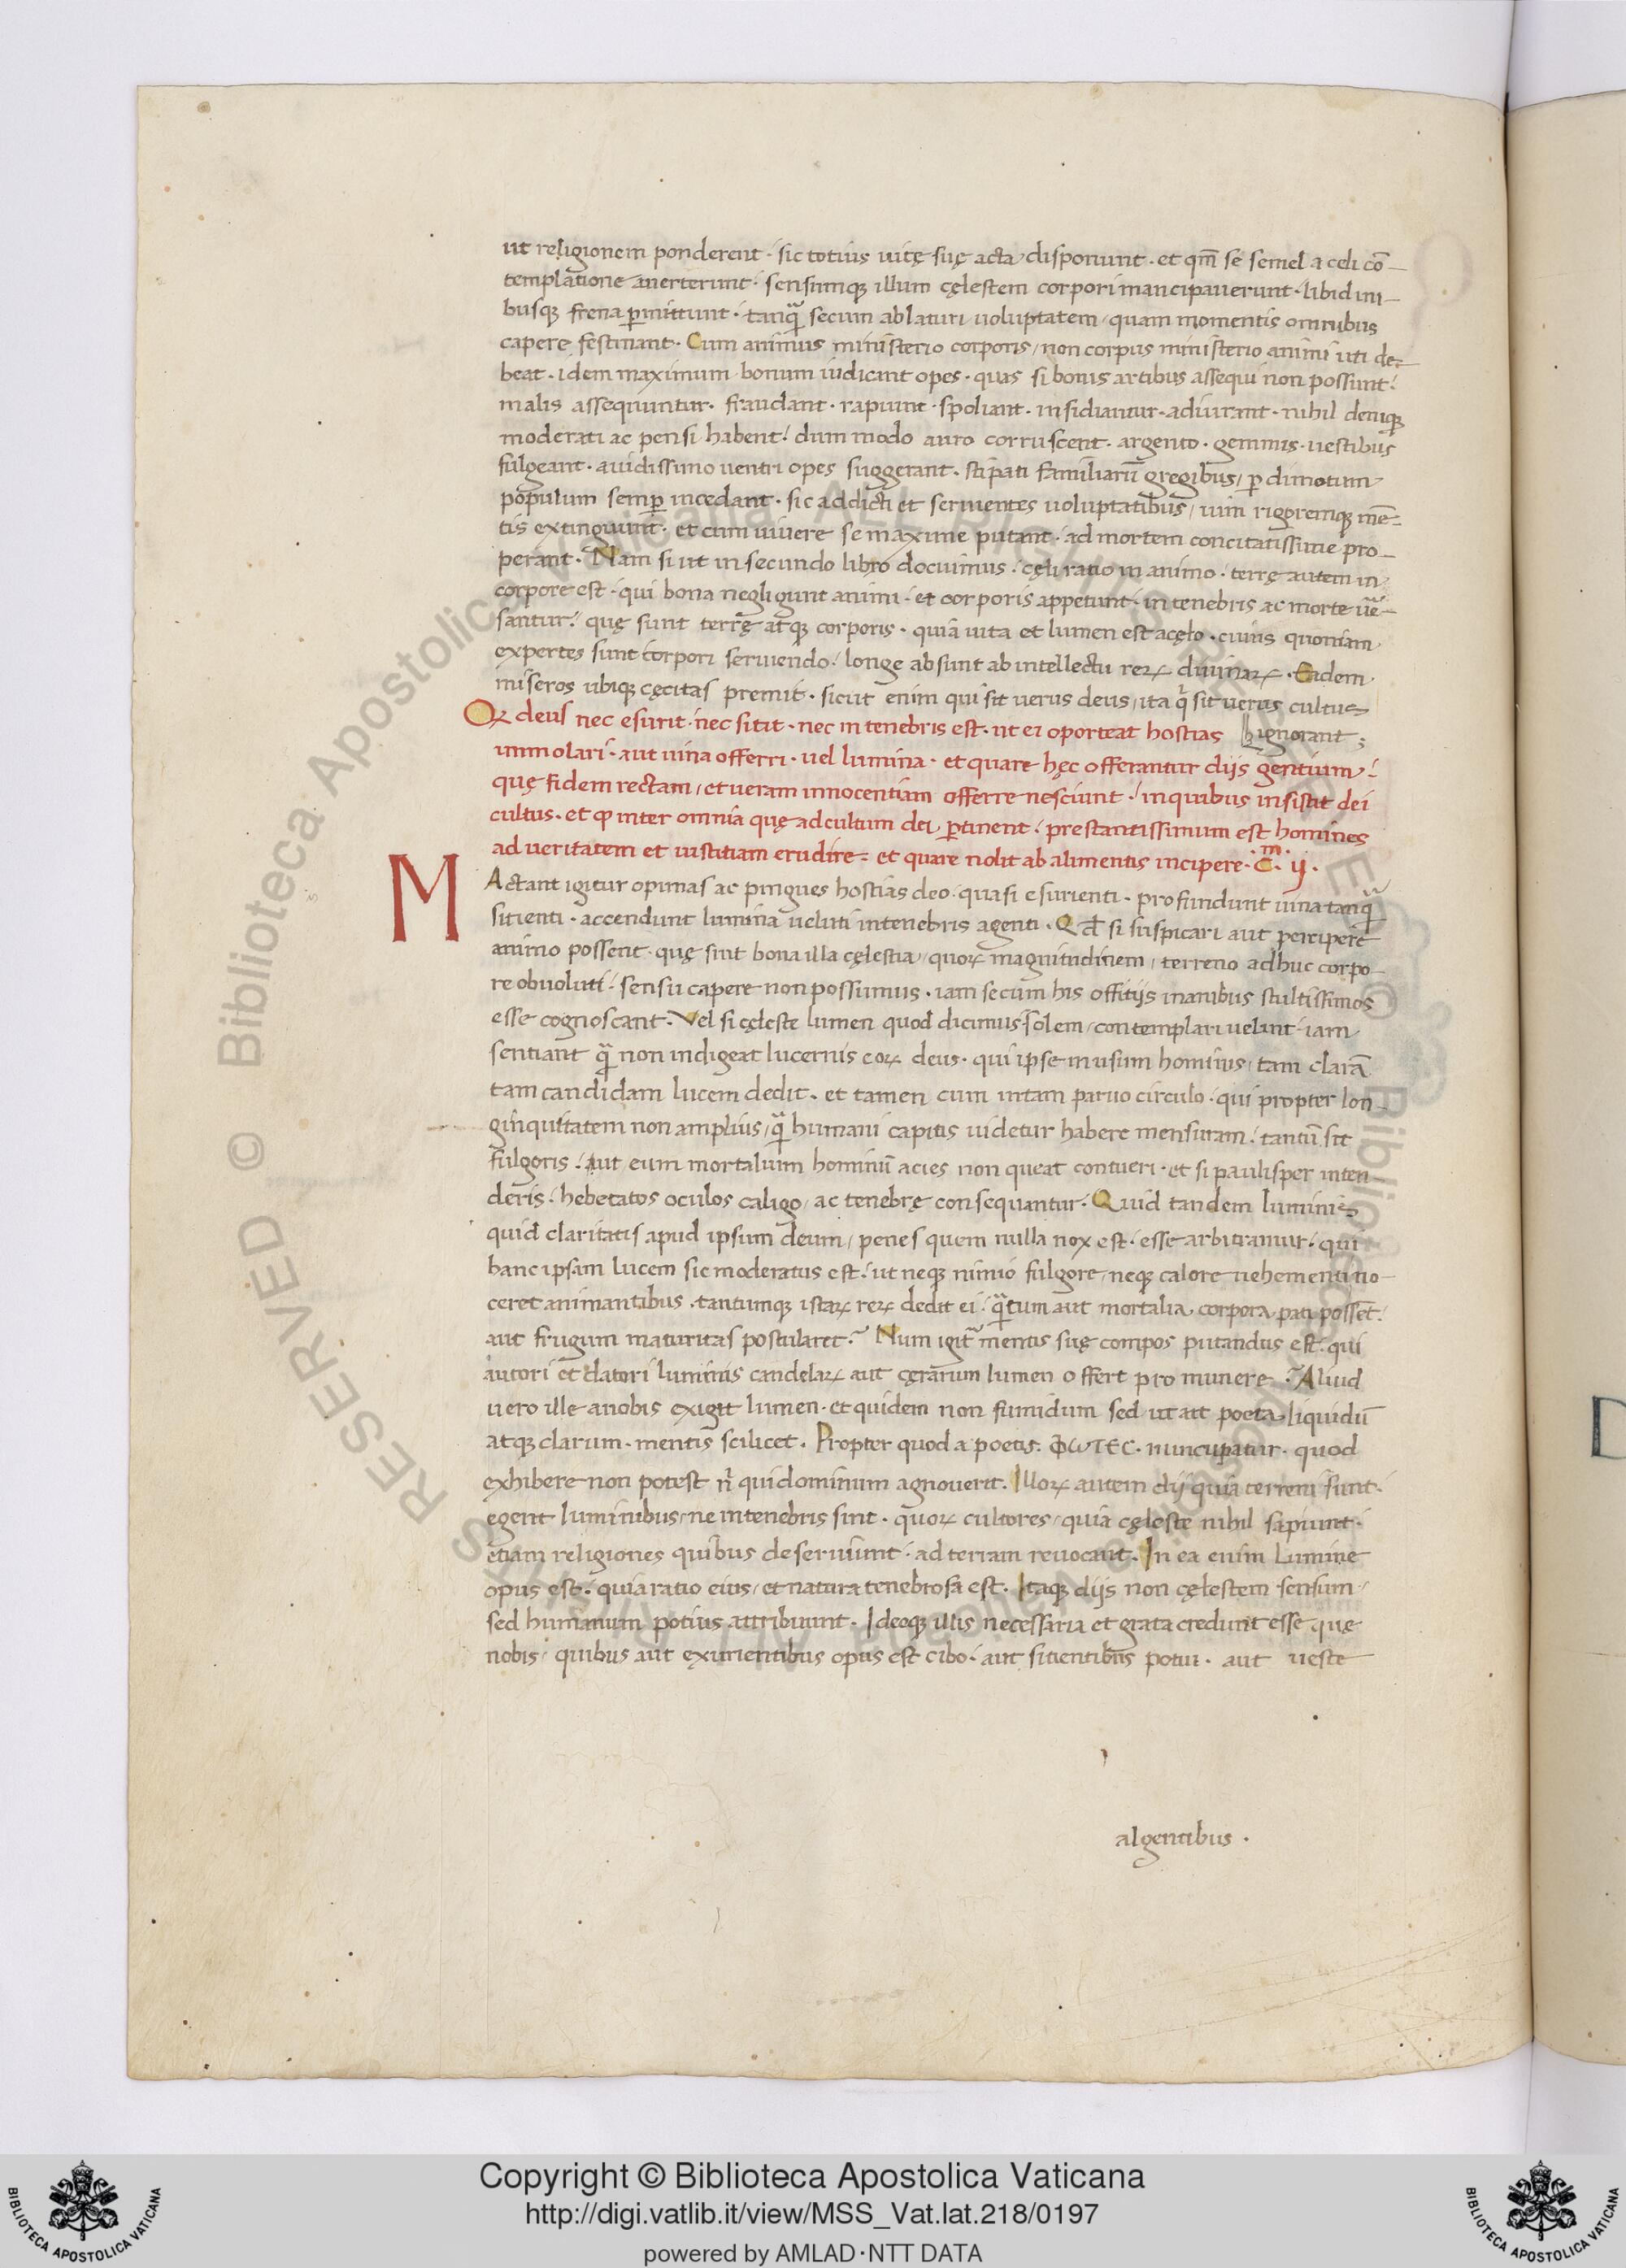 ut religionem ponderent · sic totius uitę suę acta disponunt · et qm̄ se semel a celi cō-
templatione auerterunt · sensumq; illum cęlestem corpori mancipauerunt · libidini-
busq; frena ꝑmittunt · tanq̃ secum ablaturi uoluptatem / quam momentis omnibus
capere festinant · Cum animus ministerio corporis / non corpus ministerio animi uti de-
beat · idem maximum bonum iudicant opes · quas si bonis artibus assequi non possunt /
malis assequntur · fraudant · rapiunt · spoliant · insidiantur · adiurant · nihil deniq;
moderati ac pensi habent / dum modo auro corruscent · argento · gemmis · uestibus
fulgeant · auidissimo uentri opes suggerant · stipati familiarū gregibus / ꝑ dimotum
populum semꝑ incedant · sic addicti et seruientes uoluptatibus / uim rigoremq; mē-
tis extinguunt · et cum uiuere se maxime putant · ad mortem concitatissime pro-
perant · Nam si ut in secundo libro docuimus · cęli ratio in animo · terrę autem in
corpore est · qui bona negligunt animi · et corporis appetunt · in tenebris ac morte ūe-
santur / quę sunt terrę atq; corporis · quia uita et lumen est a cęlo · cuius quoniam
expertes sunt corpori seruiendo / longe absunt ab intellectu reꝝ diuinaꝝ · Eadem
miseros ubiq; cęcitas premit · sicut enim qui sit uerus deus / ita q̄ sit uerus cultus
ignorant ;
Qꝝ deus nec esurit · nec sitit · nec in tenebris est · ut ei oporteat hostias
immolari · aut uina offerri · uel lumina · et quare hęc offerantur diis gentium /
quę fidem rectam / et ueram innocentiam offerre nesciunt / in quibus insistit dei
cultus · et ꝙ inter omnia quę ad cultum dei ꝑtinent / prestantissimum est homines
ad ueritatem et iustitiam erudire = et quare nolit ab alimentis incipere · C̄m · ij ·
MActant igitur opimas ac pingues hostias deo · quasi esurienti · profundunt uina tanq̃
sitienti · accendunt lumina ueluti in tenebris agenti · Qd si suspicari aut percipere
animo possent · quę sint bona illa cęlestia / quoꝝ magnitudinem / terreno adhuc corpo-
re obuoluti / sensu capere non possumus · iam se cum his offitijs inanibus stultissimos
esse cognoscant · Vel si cęleste lumen quod dicimus solem / contemplari uelint · iam
sentiant q̃ non indigeat lucernis eoꝝ deus · qui ipse in usum hominis / tam clarā
tam candidam lucem dedit · et tamen cum in tam paruo circulo · qui propter lon-
ginquitatem non amplius / q̃ humani capitis uidetur habere mensuram / tantū sit
fulgoris / ut eum mortalium hominū acies non queat contueri · et si paulisper inten-
deris / hebetatos oculos caligo / ac tenebrę consequantur · Quid tandem luminis
quid claritatis apud ipsum deum / penes quem nulla nox est / esse arbitramur / qui
hanc ipsam lucem sic moderatus est / ut neq; nimio fulgore / neq; calore uehementi no-
ceret animantibus · tantumq; istaꝝ reꝝ dedit ei / q̃tum aut mortalia corpora pati possēt /
aut frugum maturitas postularet ? Num igit̃ mentis suę compos putandus est / qui
autori et datori luminis candelaꝝ aut cęrarum lumen offert pro munere ? Aliud
uero ille a nobis exigit lumen · et quidem non fumidum sed ut ait poeta liquidū
atq; clarum · mentis scilicet · Propter quod a poetis · ΦωΤΕC · nuncupatur · quod
exhibere non potest n̄ qui dominum agnouerit · Illoꝝ autem dij quia terreni sunt /
egent luminibus / ne in tenebris sint · quoꝝ cultores / quia cęleste nihil sapiunt ·
etiam religiones quibus deseruiunt · ad terram reuocant · In ea enim Lumine
opus est · quia ratio eius / et natura tenebrosa est · Itaq; diis non cęlestem sensum /
sed humanum potius attribuunt · Ideoq; illis necessaria et grata credunt esse quę
nobis / quibus aut exurientibus opus est cibo · aut sitientibus potu · aut ueste
algentibus ·
© Biblioteca Apostolica Vaticana ALL RIGHTS RESERVED
Copyright © Biblioteca Apostolica Vaticana
http://digi.vatlib.it/view/MSS_Vat.lat.218/0197
powered by AMLAD·NTT DATA
BIBLIOTECA APOSTOLICA VATICANA
BIBLIOTECA APOSTOLICA VATICANA